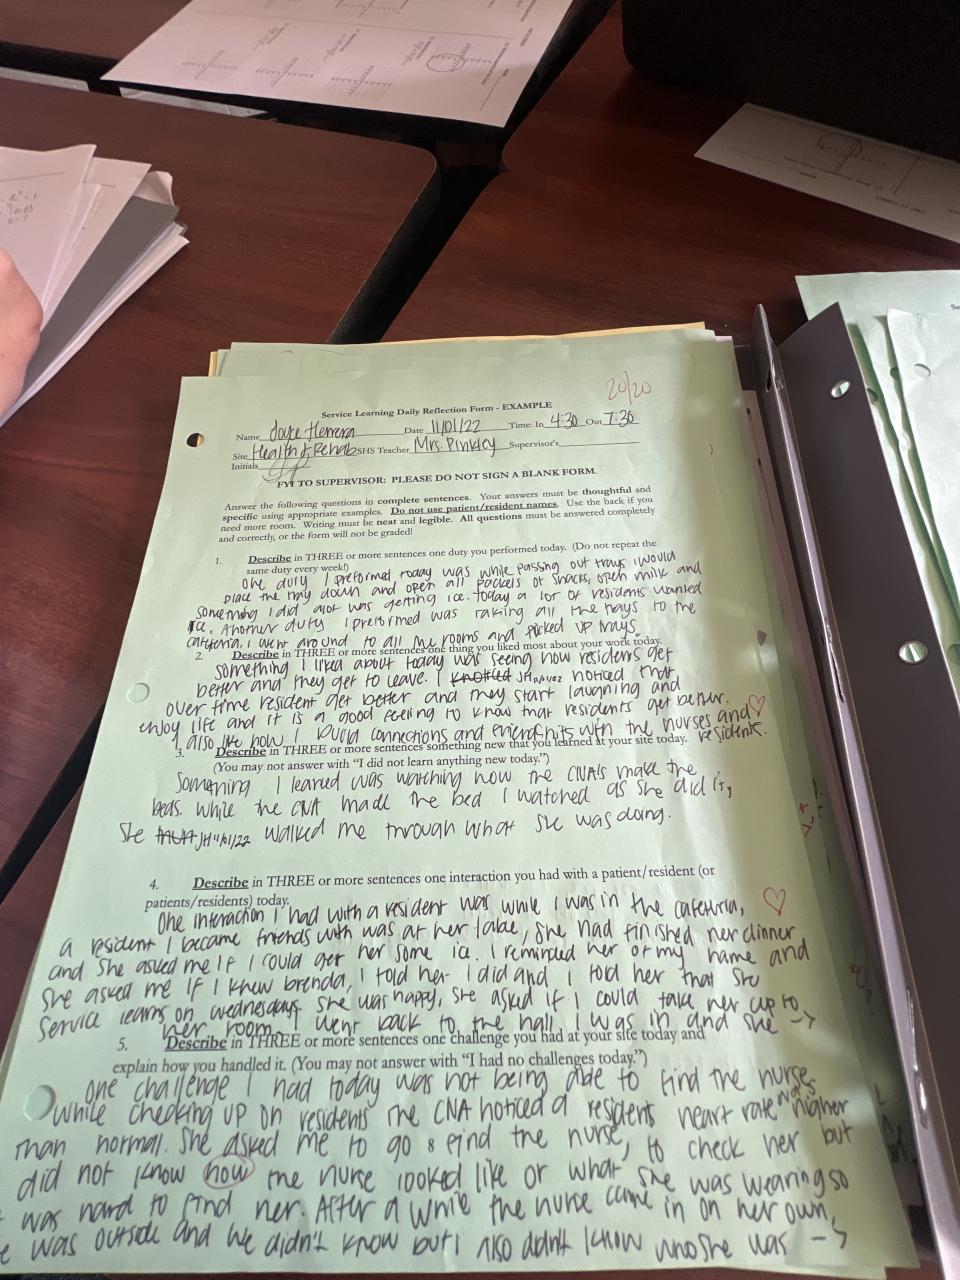 20/20
Service Learning Daily Reflection Form - EXAMPLE
Name Joyce Herrera Date 11/01/22 Time: In 4:30 Out 7:30
Site Health & Rehab SHS Teacher Mrs. Pinkley Supervisor's
Initials
FYI TO SUPERVISOR: PLEASE DO NOT SIGN A BLANK FORM.
Answer the following questions in complete sentences. Your answers must be thoughtful and
specific using appropriate examples. Do not use patient/resident names. Use the back if you
need more room. Writing must be neat and legible. All questions must be answered completely
and correctly, or the form will not be graded!
1. Describe in THREE or more sentences one duty you performed today. (Do not repeat the
same duty every week!)
One duty I preformed today was while passing out trays I would
place the tray down and open all packets of snacks, open milk and
something I did alot was getting ice. Today a lot of residents wanted
ice. Another duty I preformed was taking all the trays to the
cafeteria, I went around to all the rooms and picked up trays.
2. Describe in THREE or more sentences one thing you liked most about your work today.
something I liked about today was seeing how residents get
better and they get to leave. I JH 11/01/22 noticed that
over time resident get better and they start laughing and
enjoy life and it is a good feeling to know that residents get better.
I also like how I build connections and friendhits with the nurses and
residents.
3. Describe in THREE or more sentences something new that you learned at your site today.
(You may not answer with "I did not learn anything new today.")
Something I leared was watching how the CNA's make the
beds. While the CNA made the bed I watched as she did it,
She JH 11/01/22 walked me through what she was doing.
4. Describe in THREE or more sentences one interaction you had with a patient/resident (or
patients/residents) today.
One interaction I had with a resident was while I was in the cafeteria,
a resident I became friends with was at her table, she had finished her dinner
and she asked me if I could get her some ice. I reminded her of my name and
she asked me if I knew brenda, I told her I did and I told her that she
service learns on wednesdays. She was happy, she asked if I could take her up to
her room. I went back to the hall I was in and she ->
5. Describe in THREE or more sentences one challenge you had at your site today and
explain how you handled it. (You may not answer with "I had no challenges today.")
One challenge I had today was not being able to find the nurse.
While checking up on residents the CNA noticed a residents heart rate was higher
than normal. She asked me to go & find the nurse, to check her but
did not know how the nurse looked like or what she was wearing so
was hard to find her. After a while the nurse came in on her own,
was outside and we didn't know but I also didn't know who she was ->